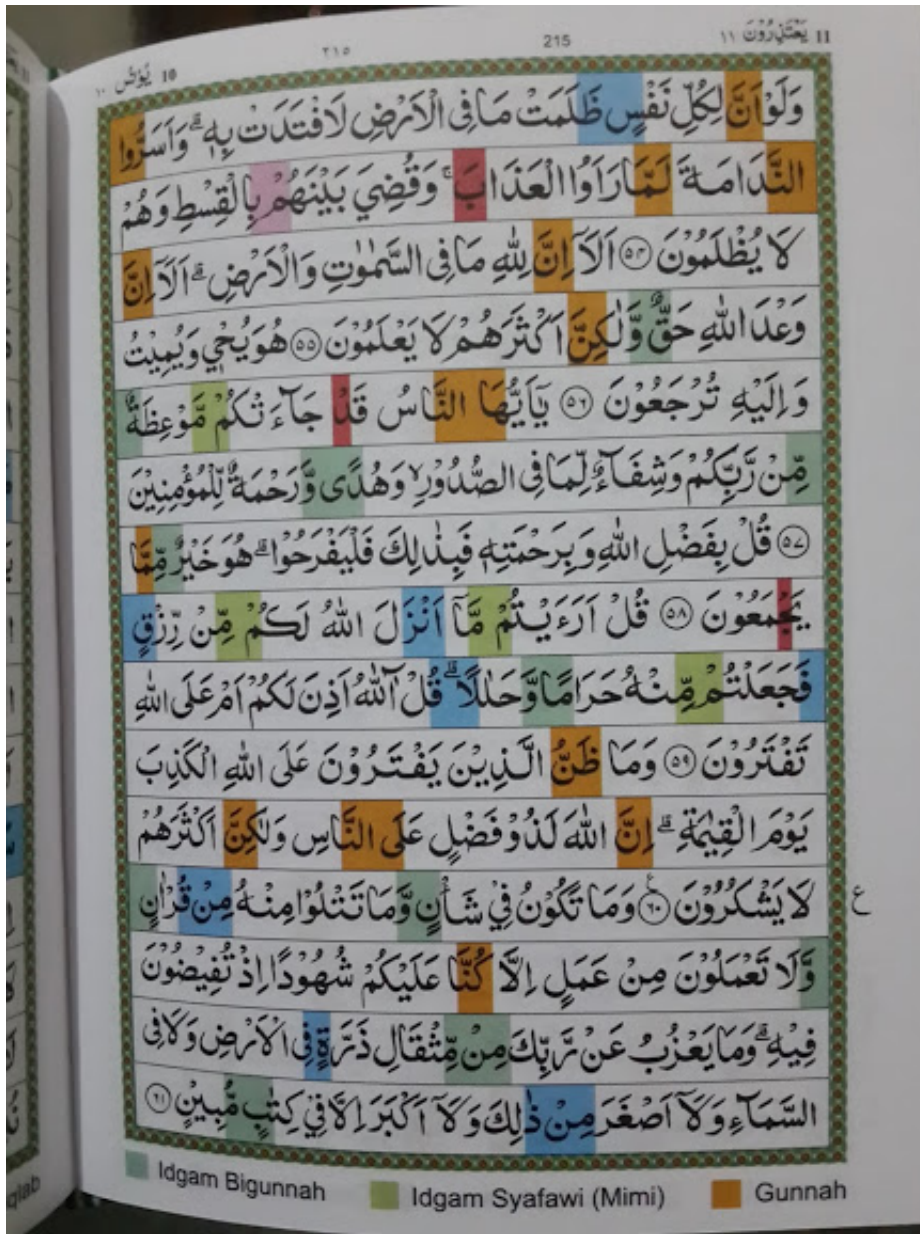 11 يَعْتَذِرُوْنَ ١١
215
٢١٥
10 يُوْنُسُ ١٠
وَلَوْ اَنَّ لِكُلِّ نَفْسٍ ظَلَمَتْ مَا فِى الْاَرْضِ لَافْتَدَتْ بِهٖۗ وَاَسَرُّوا
النَّدَامَةَ لَمَّا رَاَوُا الْعَذَابَۚ وَقُضِيَ بَيْنَهُمْ بِالْقِسْطِ وَهُمْ
لَا يُظْلَمُوْنَ ٥٤ اَلَآ اِنَّ لِلّٰهِ مَا فِى السَّمٰوٰتِ وَالْاَرْضِۗ اَلَآ اِنَّ
وَعْدَ اللّٰهِ حَقٌّ وَّلٰكِنَّ اَكْثَرَهُمْ لَا يَعْلَمُوْنَ ٥٥ هُوَ يُحْيٖ وَيُمِيْتُ
وَاِلَيْهِ تُرْجَعُوْنَ ٥٦ يٰٓاَيُّهَا النَّاسُ قَدْ جَاۤءَتْكُمْ مَّوْعِظَةٌ
مِّنْ رَّبِّكُمْ وَشِفَاۤءٌ لِّمَا فِى الصُّدُوْرِۙ وَهُدًى وَّرَحْمَةٌ لِّلْمُؤْمِنِيْنَ
٥٧ قُلْ بِفَضْلِ اللّٰهِ وَبِرَحْمَتِهٖ فَبِذٰلِكَ فَلْيَفْرَحُوْاۗ هُوَ خَيْرٌ مِّمَّا
يَجْمَعُوْنَ ٥٨ قُلْ اَرَءَيْتُمْ مَّآ اَنْزَلَ اللّٰهُ لَكُمْ مِّنْ رِّزْقٍ
فَجَعَلْتُمْ مِّنْهُ حَرَامًا وَّحَلٰلًاۗ قُلْ اٰۤللّٰهُ اَذِنَ لَكُمْ اَمْ عَلَى اللّٰهِ
تَفْتَرُوْنَ ٥٩ وَمَا ظَنُّ الَّذِيْنَ يَفْتَرُوْنَ عَلَى اللّٰهِ الْكَذِبَ
يَوْمَ الْقِيٰمَةِۗ اِنَّ اللّٰهَ لَذُوْ فَضْلٍ عَلَى النَّاسِ وَلٰكِنَّ اَكْثَرَهُمْ
لَا يَشْكُرُوْنَ ٦٠ࣖ وَمَا تَكُوْنُ فِيْ شَأْنٍ وَّمَا تَتْلُوْا مِنْهُ مِنْ قُرْاٰنٍ
ع
وَّلَا تَعْمَلُوْنَ مِنْ عَمَلٍ اِلَّا كُنَّا عَلَيْكُمْ شُهُوْدًا اِذْ تُفِيْضُوْنَ
فِيْهِۗ وَمَا يَعْزُبُ عَنْ رَّبِّكَ مِنْ مِّثْقَالِ ذَرَّةٍ فِى الْاَرْضِ وَلَا فِى
السَّمَاۤءِ وَلَآ اَصْغَرَ مِنْ ذٰلِكَ وَلَآ اَكْبَرَ اِلَّا فِيْ كِتٰبٍ مُّبِيْنٍ ٦١
Idgam Bigunnah
Idgam Syafawi (Mimi)
Gunnah